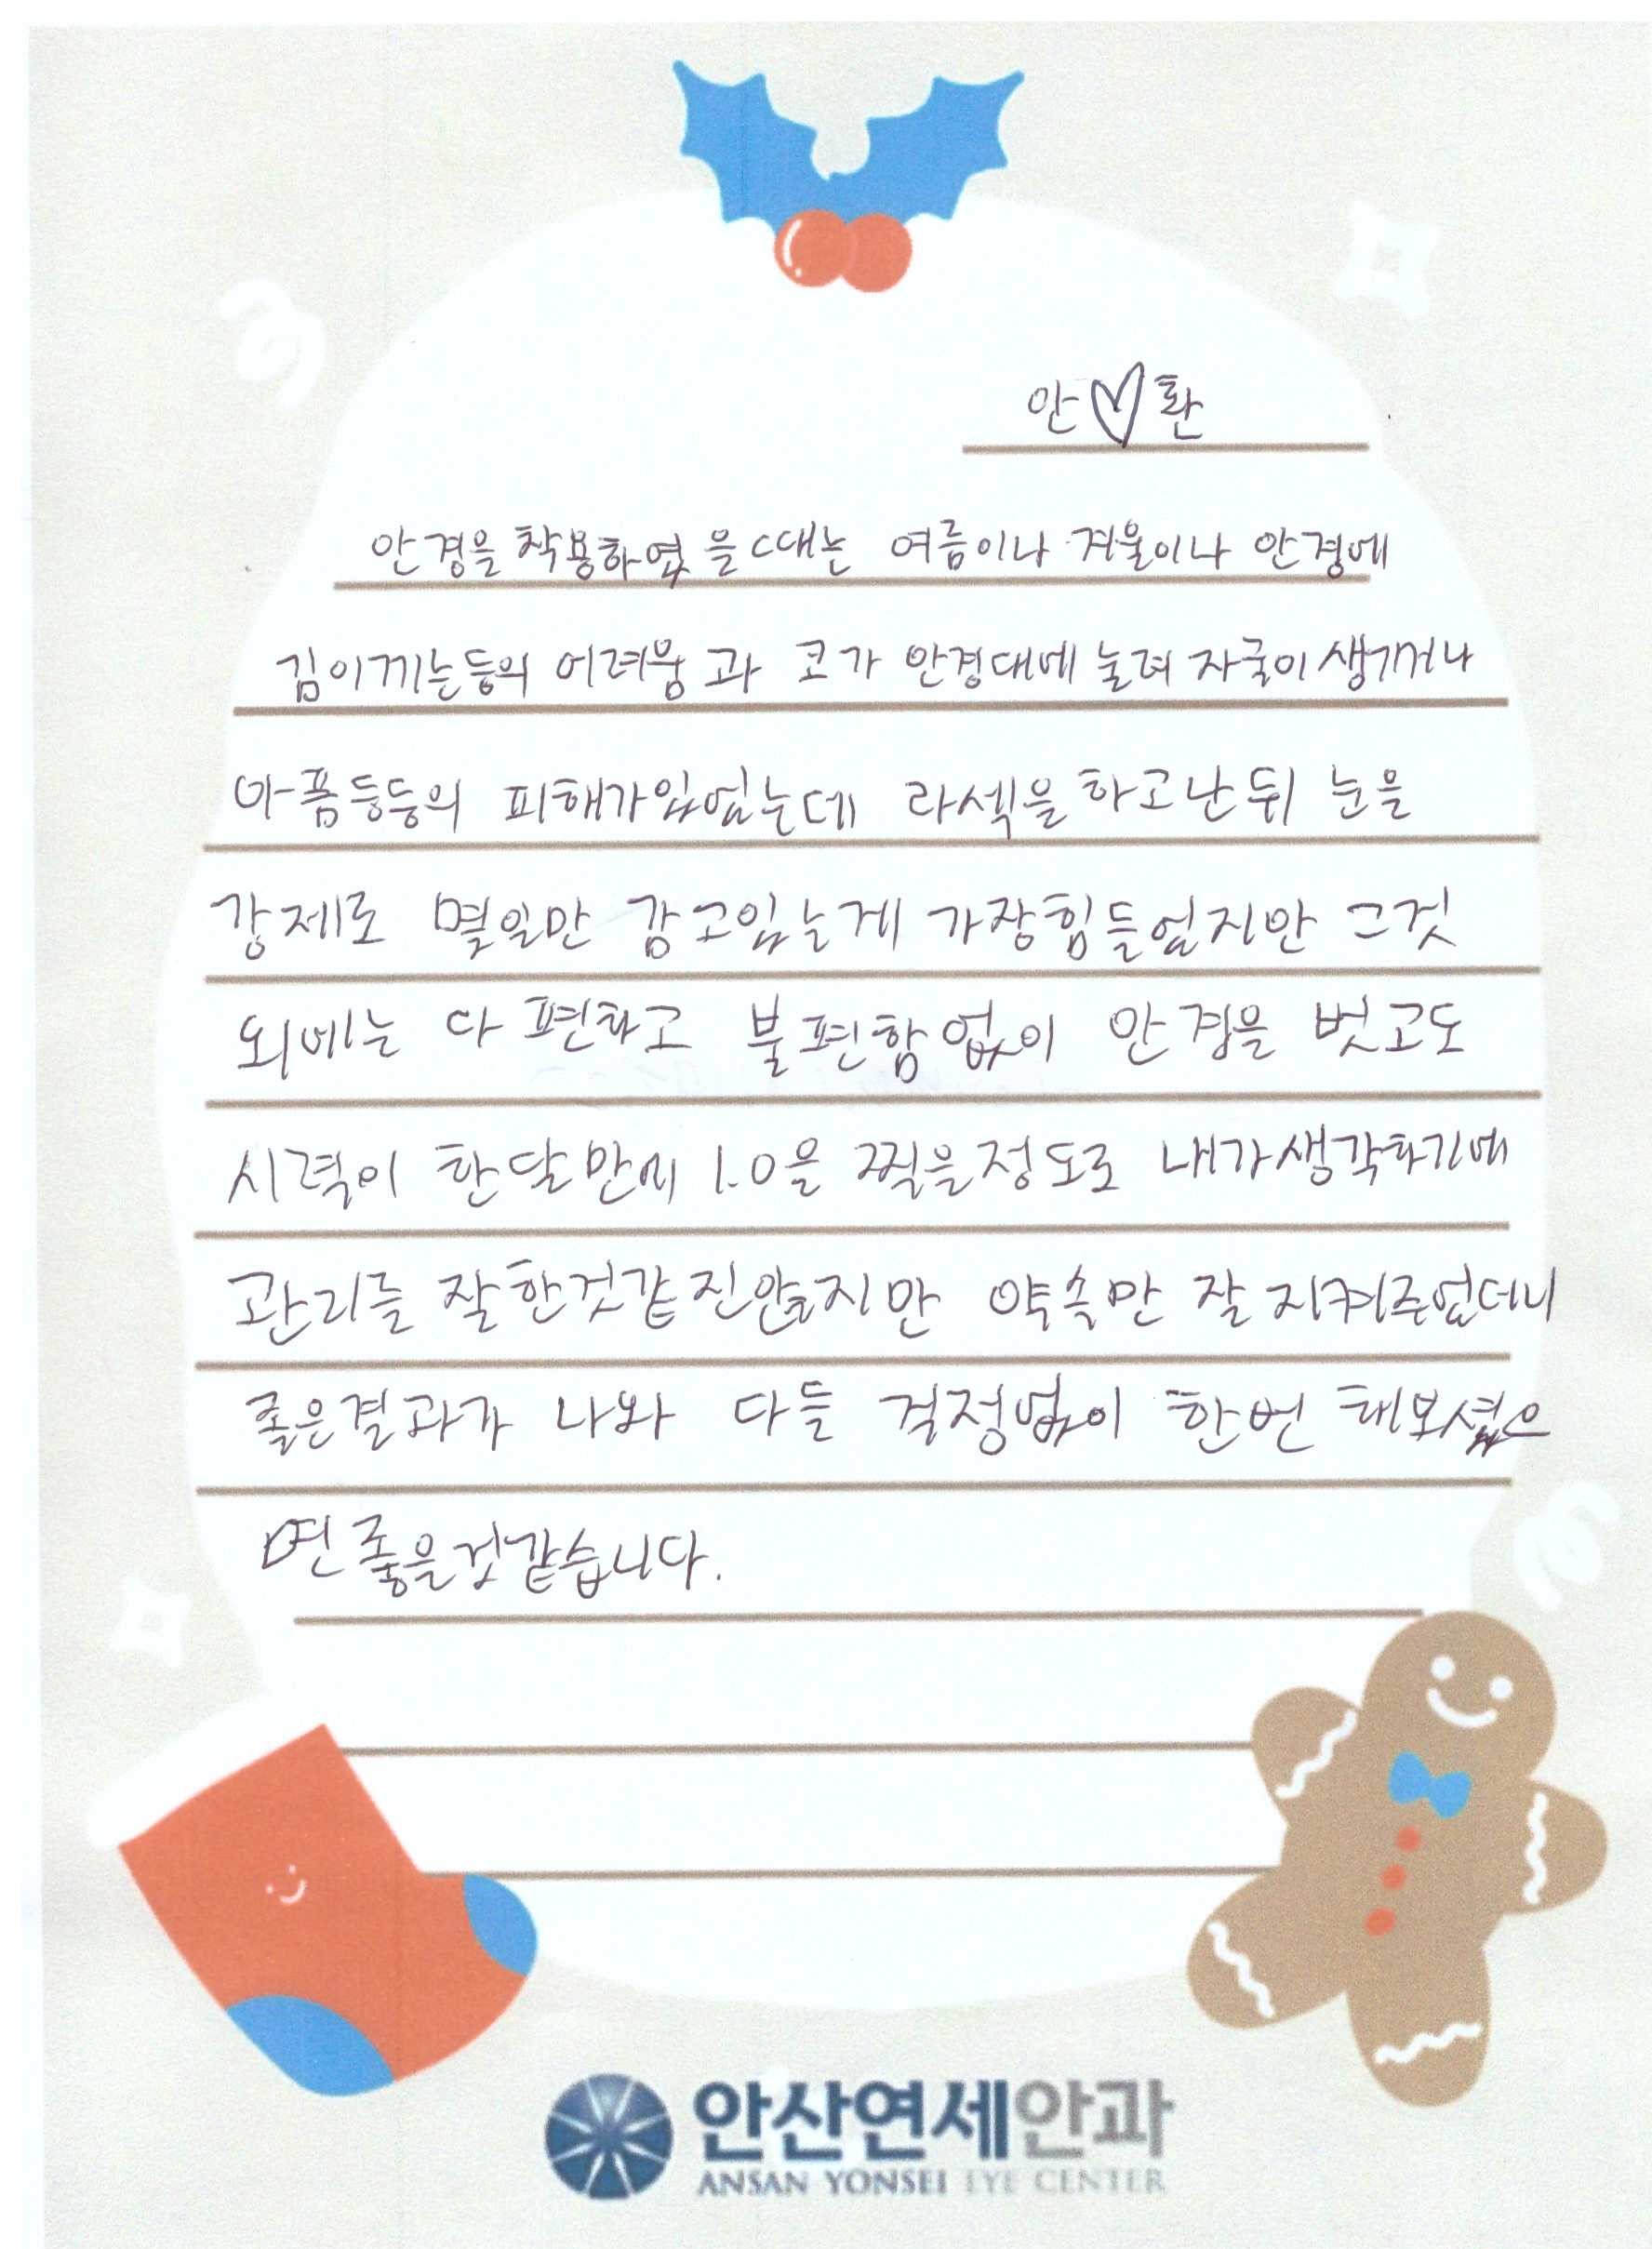 안♡환
안경을 착용하였을때는 여름이나 겨울이나 안경에
김이끼는등의 어려움과 코가 안경대에 눌려 자국이 생기거나
아픔등등의 피해가있었는데 라섹을 하고난뒤 눈을
강제로 몇일만 감고있는게 가장힘들었지만 그것
외에는 다 편하고 불편함없이 안경을 벗고도
시력이 한달만에 1.0을 찍을정도로 내가생각하기에
관리를 잘한것같진않지만 약속만 잘 지켜주었더니
좋은결과가 나와 다들 걱정없이 한번 해보셨으
면 좋을것같습니다.
안산연세안과
ANSAN YONSEI EYE CENTER